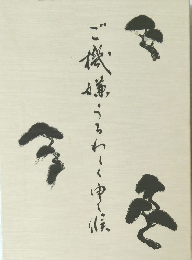 ご機嫌うるわしく申候